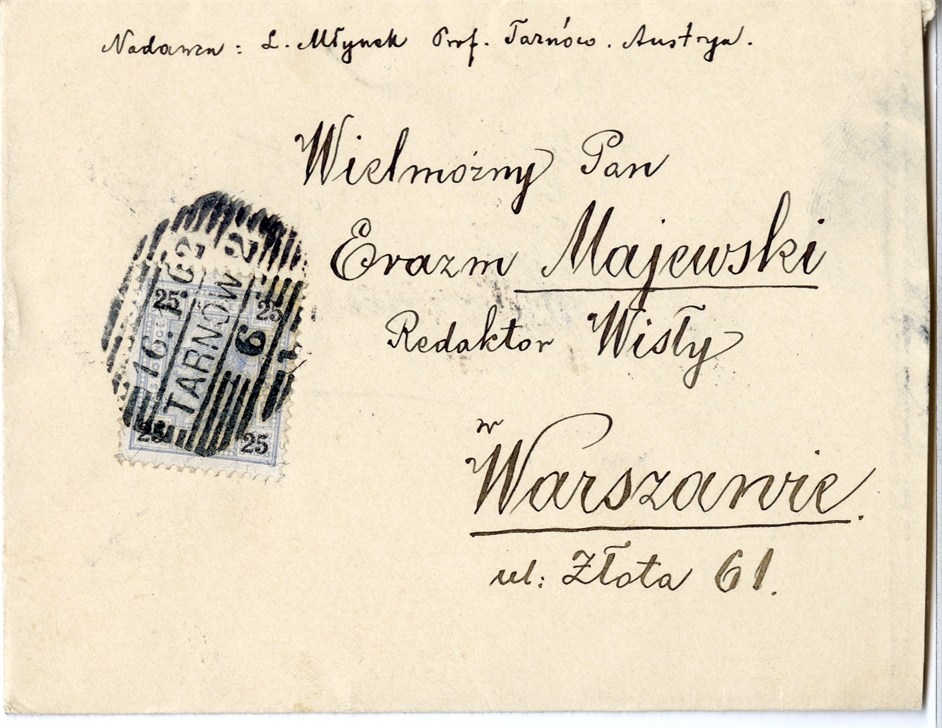 Nadawca: L. Młynek Prof. Tarnów. Austrya.
Wielmożny Pan
Erazm Majewski
Redaktor Wisły
w
Warszawie.
ul: Złota 61.
TARNÓW 2
6
25 25
25 25